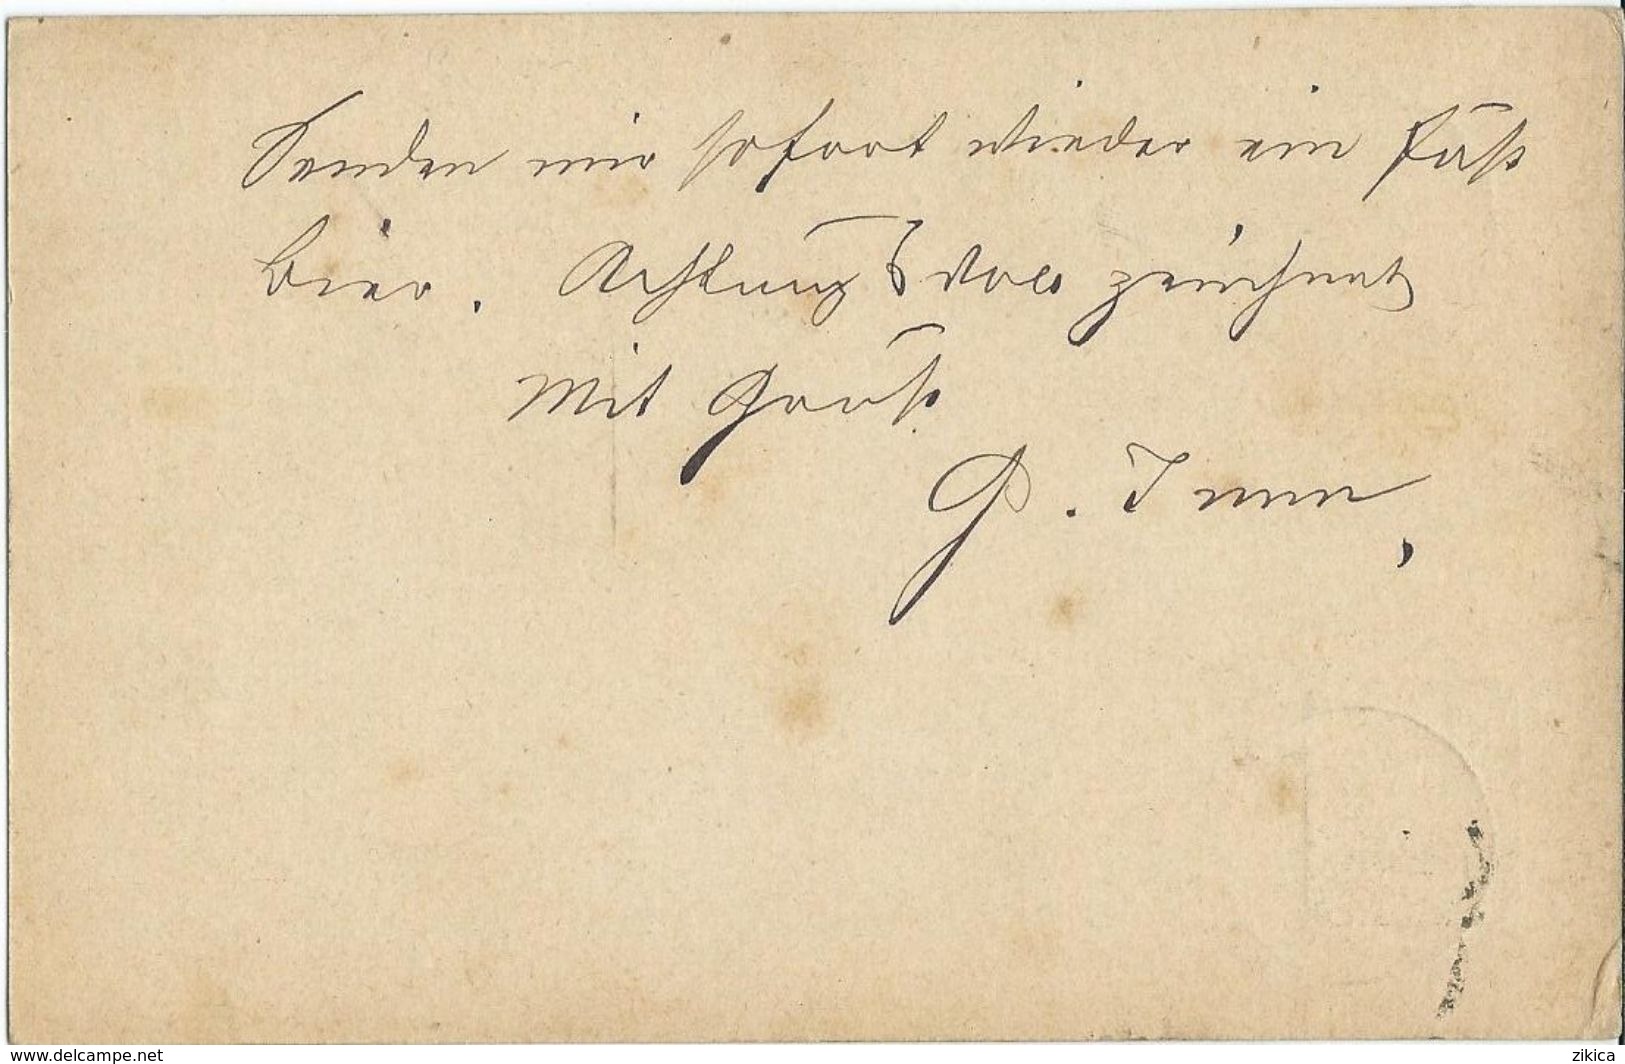 Senden mir sofort wieder ein Faß
Bier. Achtungsvoll zeichnet
Mit Gruß
G.
www.delcampe.net
zikica